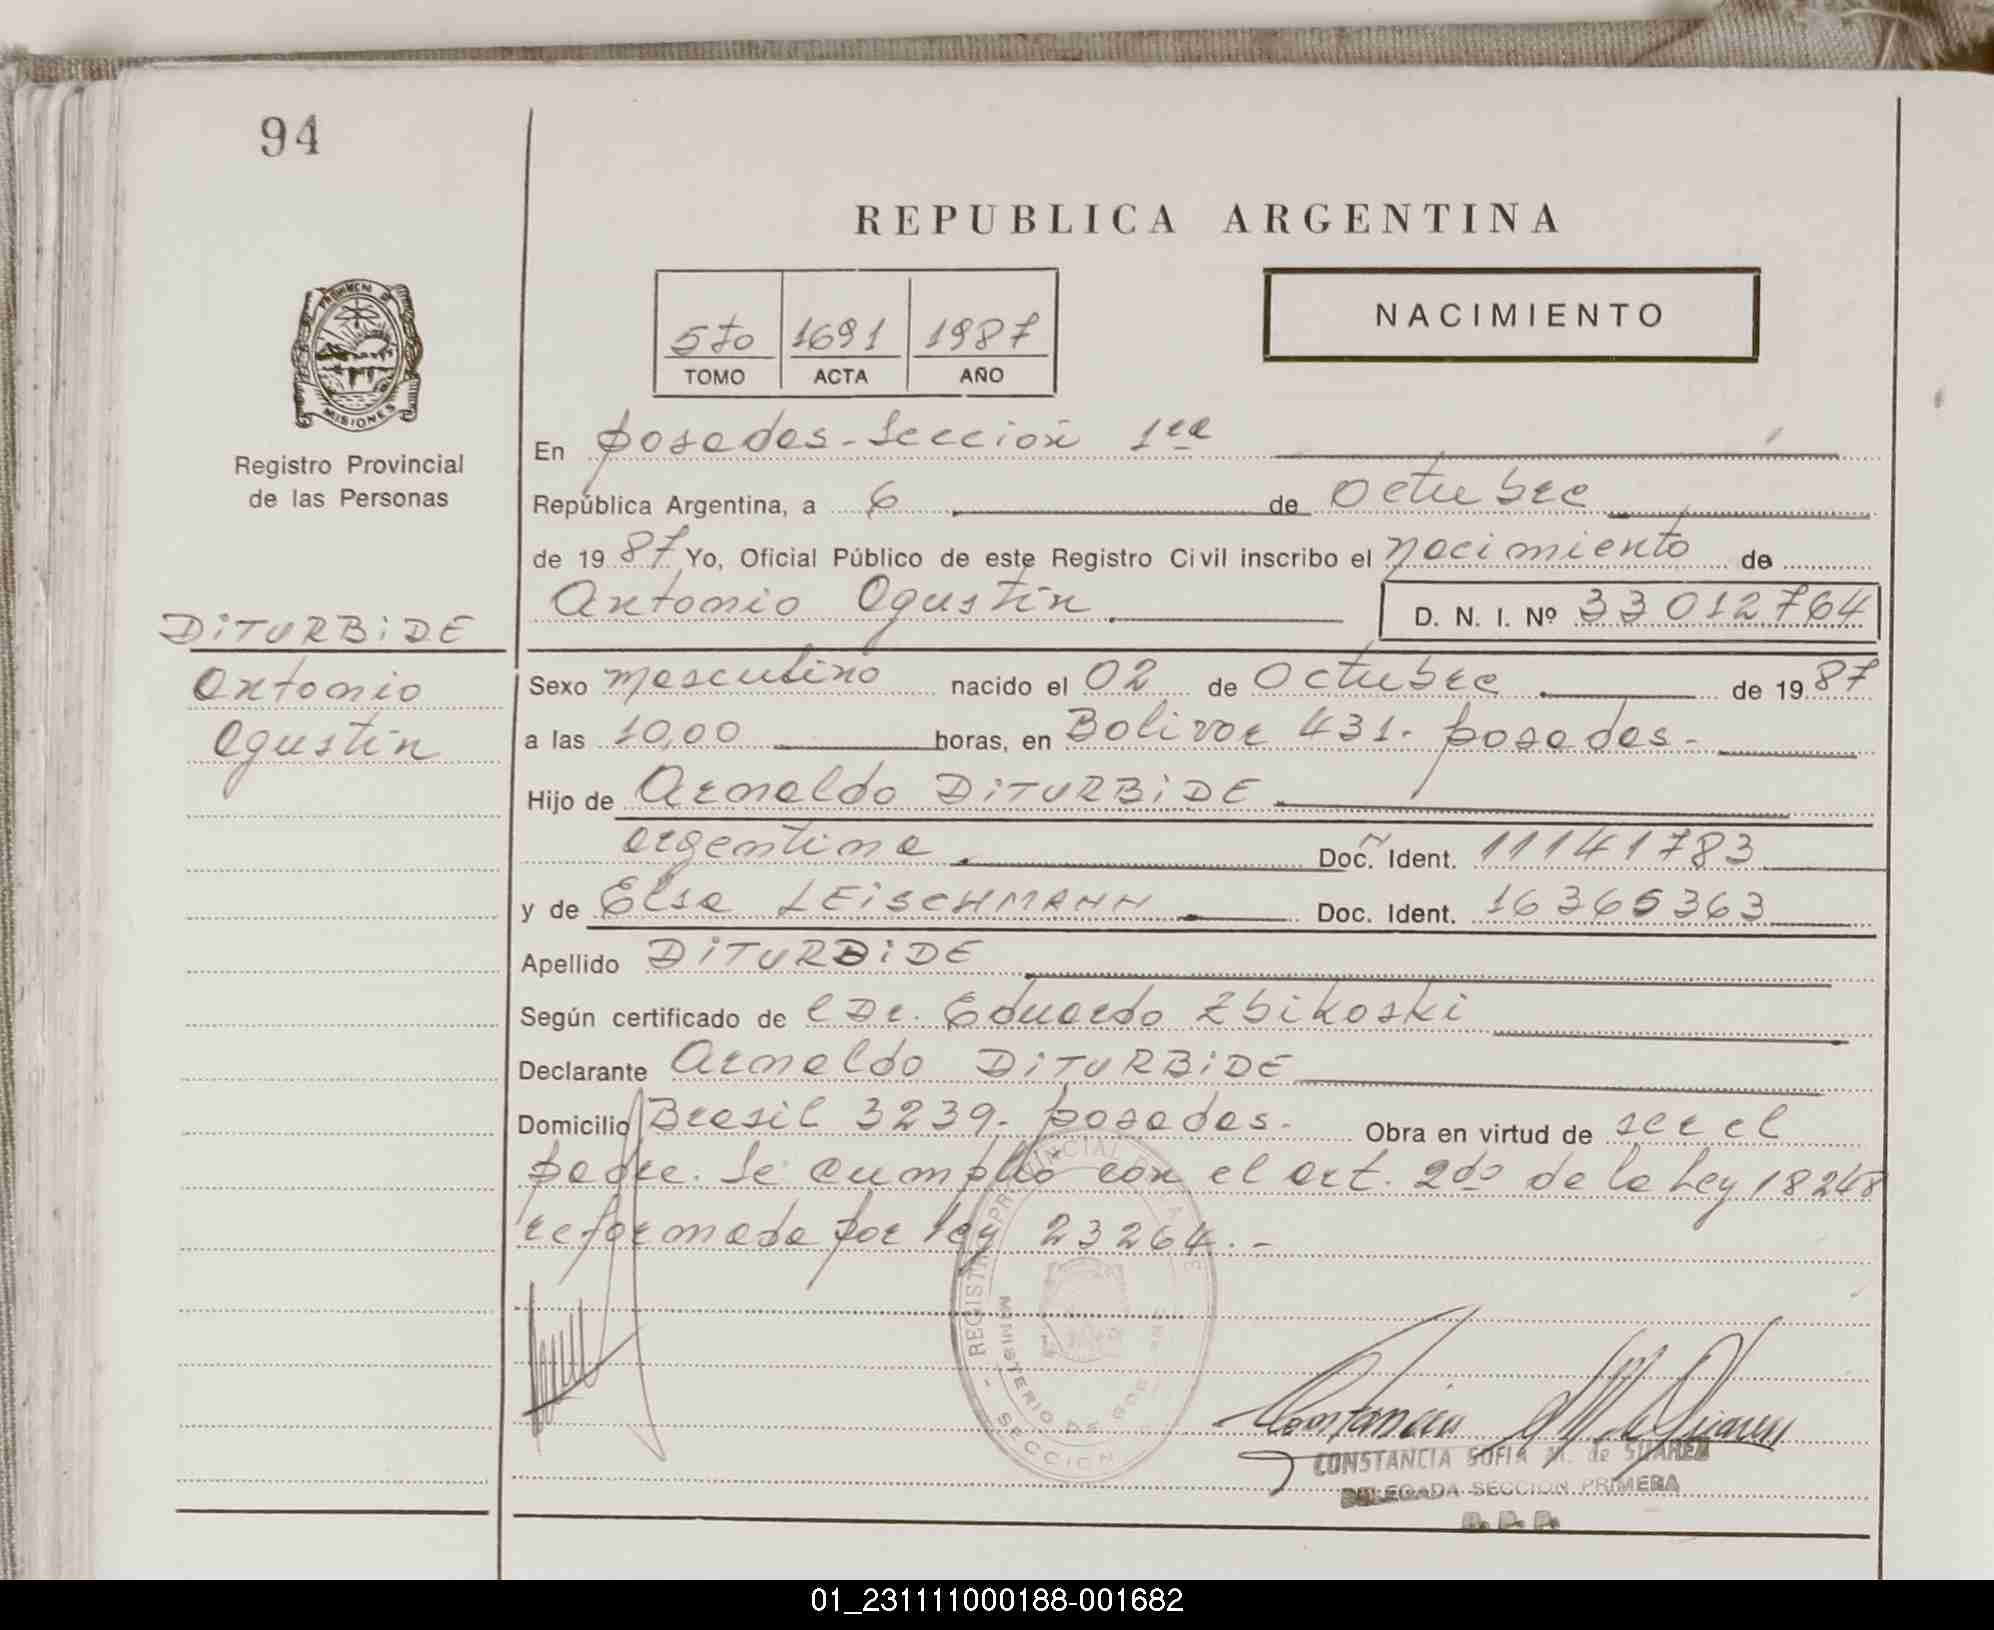 94
REPUBLICA ARGENTINA
PROVINCIA DE
MISIONES
Registro Provincial
de las Personas
5to 1691 1987
TOMO ACTA AÑO
NACIMIENTO
En posadas - Sección 1ra
República Argentina, a 6 de octubre
de 1987 Yo, Oficial Público de este Registro Civil inscribo el nacimiento de
Antonio Agustín D. N. I. Nº 33012764
DiTURBiDE
Antonio
Agustín
Sexo masculino nacido el 02 de Octubre de 1987
a las 10,00 horas, en Bolivar 431. posadas-
Hijo de Arnaldo DiTURBiDE
argentina Doc. Ident. 11141783
y de Elsa LEiSCHMANN Doc. Ident. 16365363
Apellido DiTURBiDE
Según certificado de l Dr. Eduardo Zbikoski
Declarante Arnaldo DiTURBiDE
Domicilio Brasil 3239- posadas- Obra en virtud de ser el
padre. Se cumplió con el art. 2do de la Ley 18248
reformada por ley 23264.-
REGISTRO PROVINCIAL
MINISTERIO DE
SECCION
CONSTANCIA SOFIA M. de SUAREZ
DELEGADA SECCION PRIMERA
R. P. P.
01_231111000188-001682